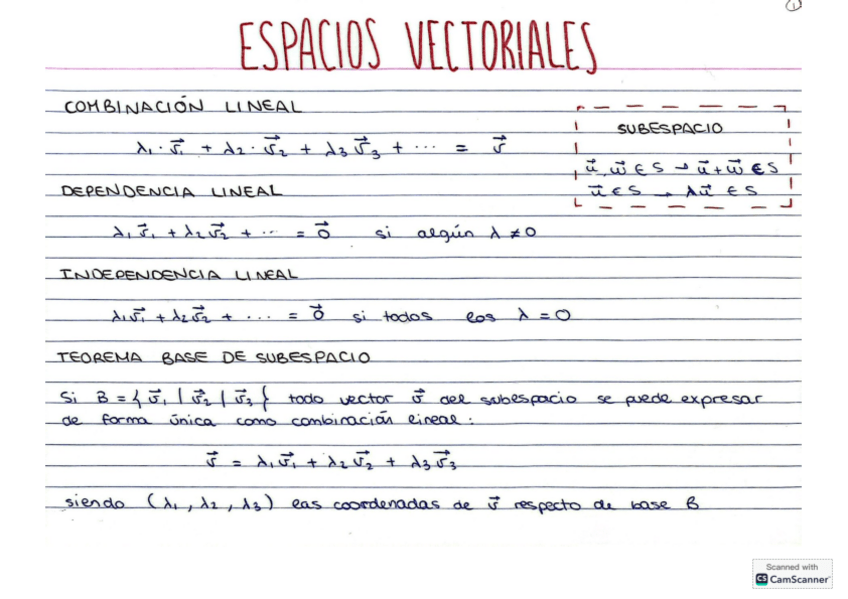 1
ESPACIOS VECTORIALES
COMBINACIÓN LINEAL
λ₁·v⃗₁ + λ₂·v⃗₂ + λ₃v⃗₃ + ... = v⃗
SUBESPACIO
u⃗, w⃗ ∈ S → u⃗+w⃗ ∈ S
u⃗ ∈ S → λu⃗ ∈ S
DEPENDENCIA LINEAL
λ₁v⃗₁ + λ₂v⃗₂ + ... = 0⃗ si algún λ ≠ 0
INDEPENDENCIA LINEAL
λ₁v⃗₁ + λ₂v⃗₂ + ... = 0⃗ si todos los λ = 0
TEOREMA BASE DE SUBESPACIO
Si B = { v⃗₁ | v⃗₂ | v⃗₃ } todo vector v⃗ del subespacio se puede expresar
de forma única como combinación lineal:
v⃗ = λ₁v⃗₁ + λ₂v⃗₂ + λ₃v⃗₃
siendo (λ₁, λ₂, λ₃) las coordenadas de v⃗ respecto de base B
Scanned with
CS CamScanner